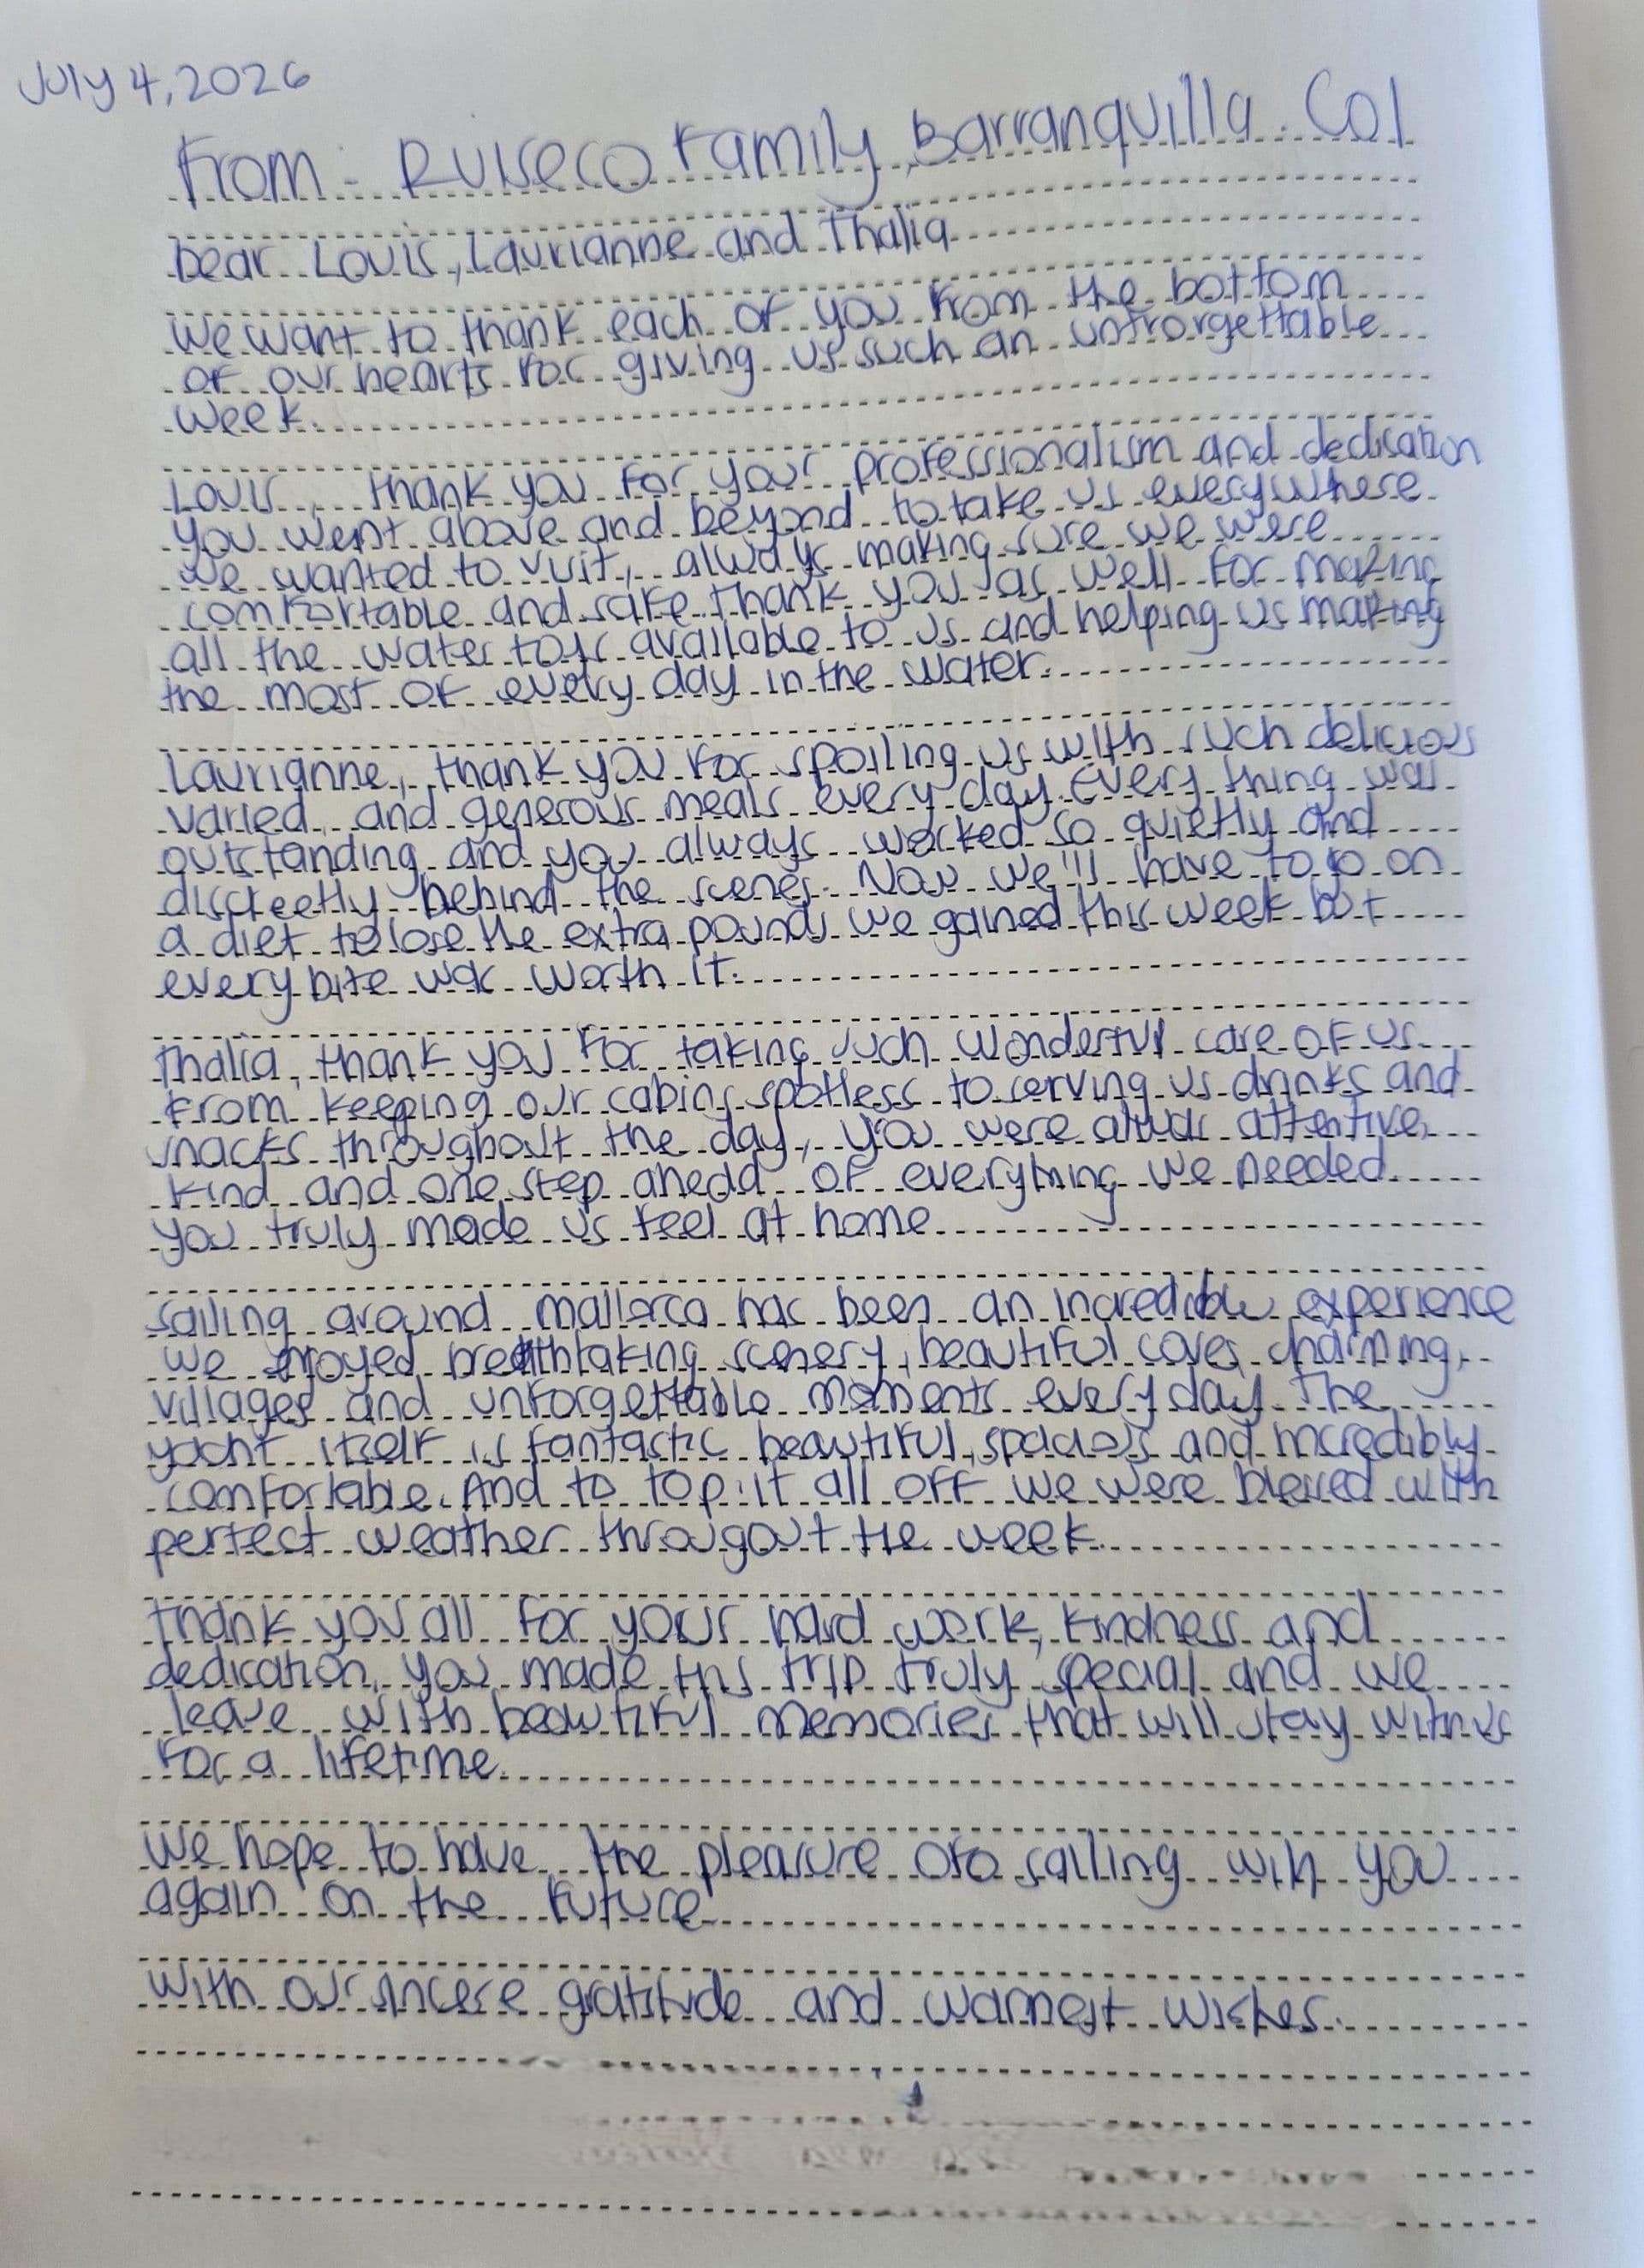 July 4, 2026
From: Ruiseco Family, Barranquilla. Col
Dear Louis, Laurianne and Thalia
We want to thank each of you from the bottom
of our hearts for giving us such an unfrorgettable
week.
Louis, thank you for your professionalism and dedication
you went above and beyond to take us everywhere
we wanted to visit, always making sure we were
comfortable and safe. Thank you as well for making
all the water toys available to us and helping us making
the most of every day in the water.
Laurianne, thank you for spoiling us with such delicious
varied and generous meals every day. Every thing was
outstanding and you always worked so quietly and
discreetly behind the scenes. Now we'll have to go on
a diet to lose the extra pounds we gained this week but
every bite was worth it.
Thalia, thank you for taking such wonderful care of us
From keeping our cabins spotless to serving us drinks and
snacks throughout the day, you were always attentive,
kind and one step ahead of everything we needed.
you truly made us feel at home
Sailing around mallorca has been an incredible experience
we enjoyed breathtaking scenery, beautiful coves, charming,
villages and unforgettable moments every day. The
yacht itself is fantastic beautiful, spacious and incredibly
comfortable. And to top it all off we were blessed with
perfect weather througout the week.
Thank you all for your hard work, kindness and
dedication, you made this trip truly special and we
leave with beautiful memories that will stay with us
for a lifetime.
We hope to have the pleasure of sailing with you
again on the future
With our sincere gratitude and warmest wishes.